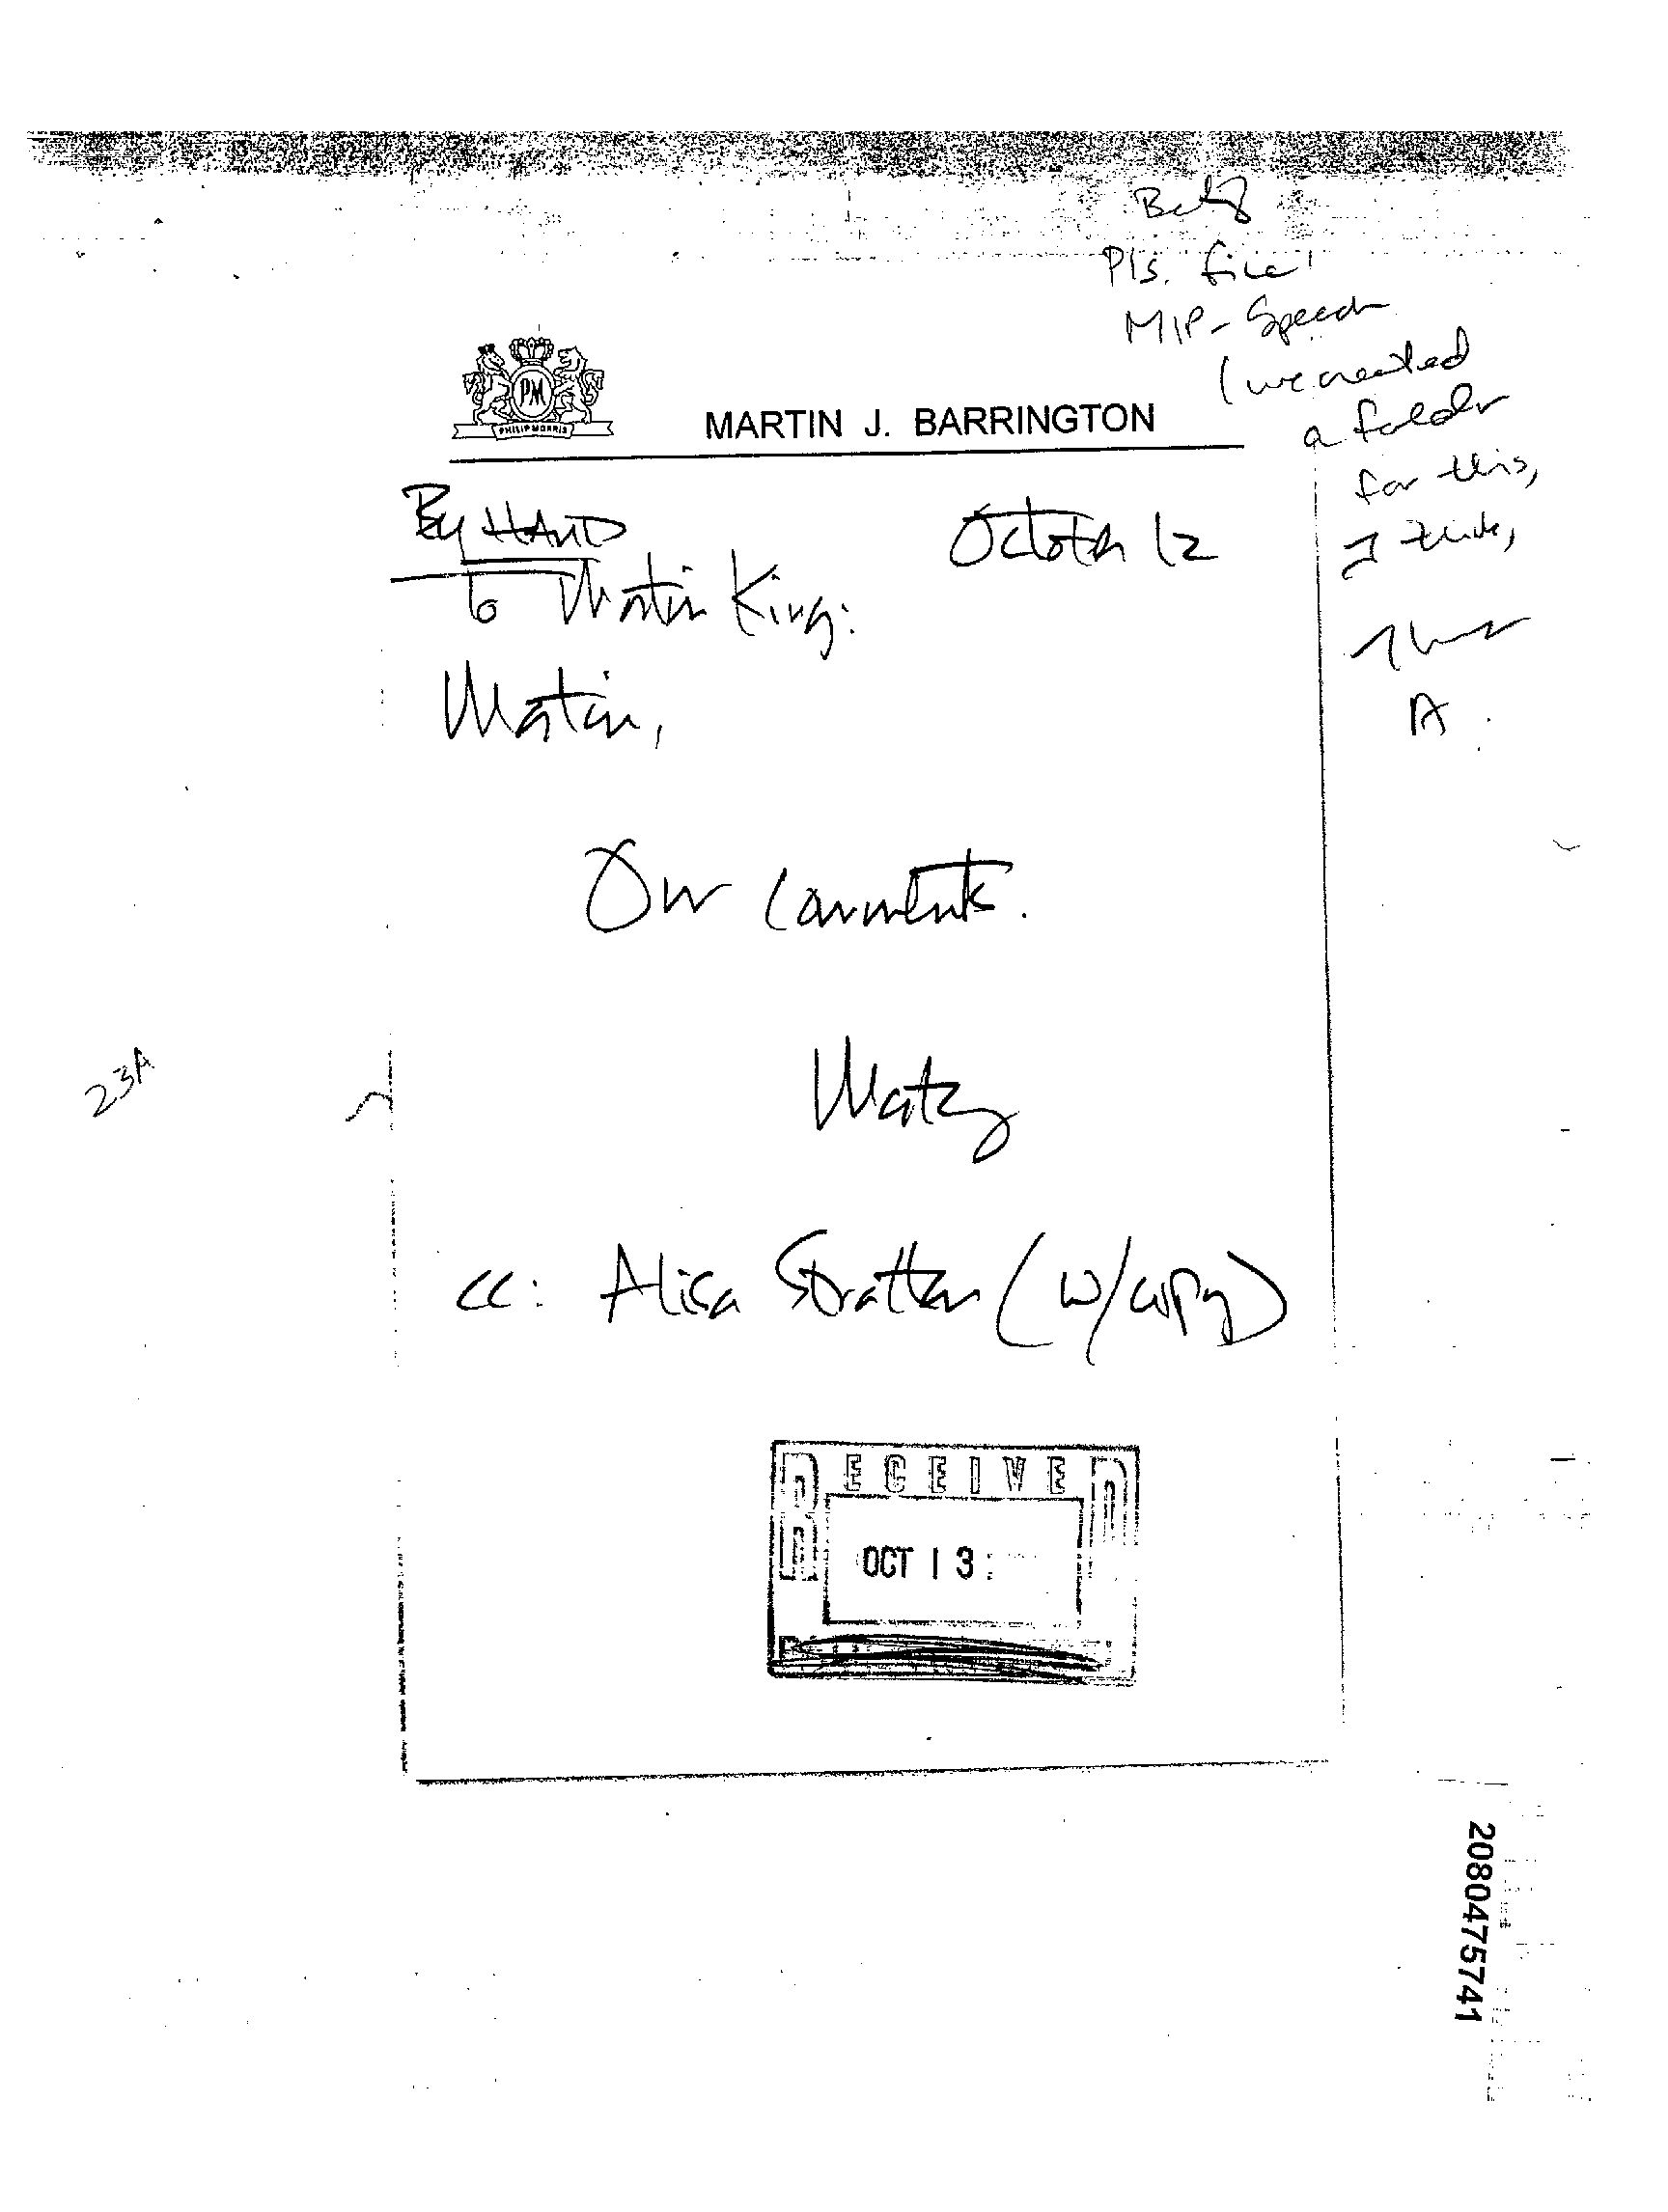 Betsy
Pls. file
MIP - Speech
(we created
a folder
for this,
I think,
A.
PM
PHILIP MORRIS
MARTIN J. BARRINGTON
By HAND
October 12
to Martin King:
Martin,
Our comments.
Marty
23A
cc: Alisa Stratten (w/copy)
RECEIVED
OCT 13
2080475741